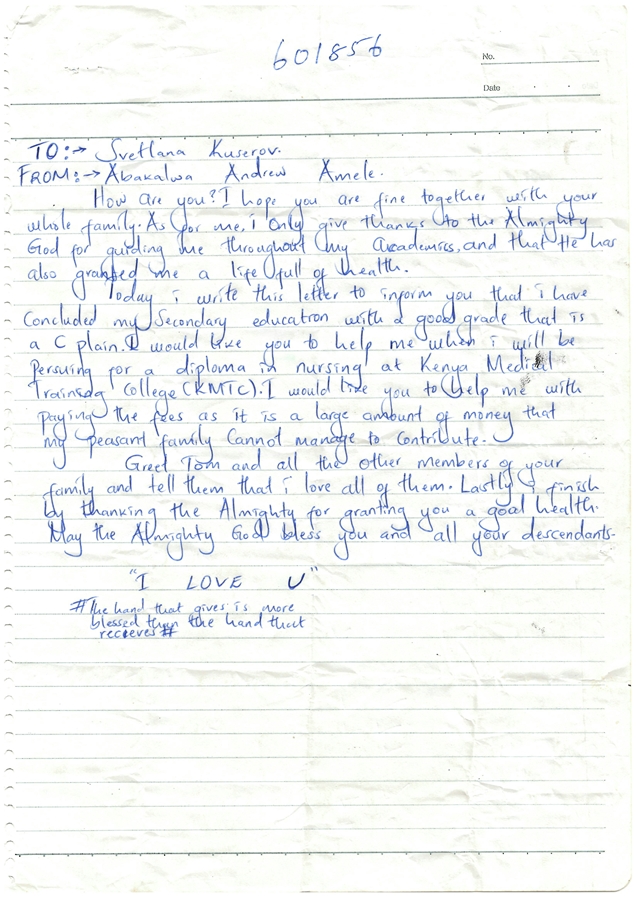 601856
No.
Date
TO:→ Svetlana Kuserov.
FROM:→ Abakalwa Andrew Amele.
How are you? I hope you are fine together with your
whole family. As for me, i only give thanks to the Almighty
God for guiding me throughout my academics, and that He has
also granted me a life full of health.
Today i write this letter to inform you that i have
concluded my Secondary education with a good grade that is
a C plain. I would like you to help me when i will be
persuing for a diploma in nursing at Kenya Medical
Training College (KMTC). I would like you to help me with
paying the fees as it is a large amount of money that
my peasant family cannot manage to contribute.
Greet Tom and all the other members of your
family and tell them that i love all of them. Lastly I finish
by thanking the Almighty for granting you a goal health.
May the Almighty God bless you and all your descendants.
"I LOVE U"
#The hand that gives is more
blessed than the hand that
recieves#